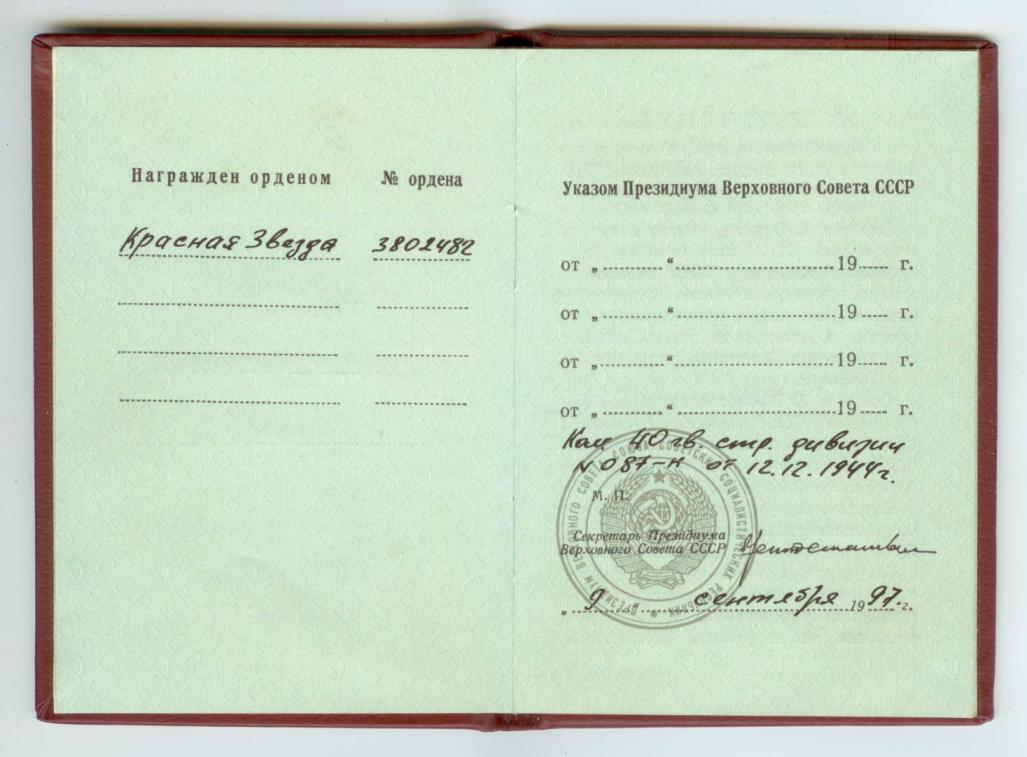 Награжден орденом № ордена
Красная Звезда 3802482
Указом Президиума Верховного Совета СССР
от „ “ 19 г.
от „ “ 19 г.
от „ “ 19 г.
от „ “ 19 г.
Ком 40 гв. стр. дивизии
N 087-н от 12.12.1944г.
М. П.
Секретарь Президиума
Верховного Совета СССР
„ 9 сентября 1997 г.
ПРЕЗИДИУМ ВЕРХОВНОГО СОВЕТА СОЮЗА СОВЕТСКИХ СОЦИАЛИСТИЧЕСКИХ РЕСПУБЛИК